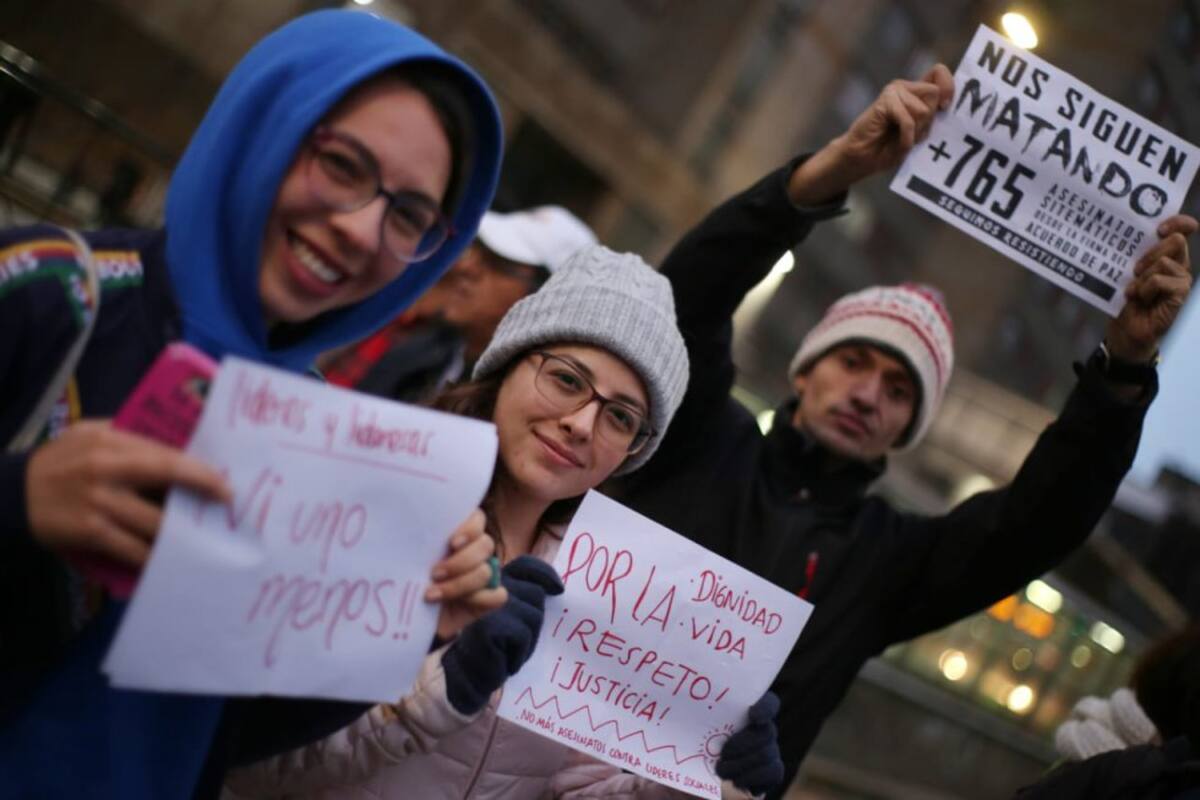 líderes y lideresas
Ni uno
menos!!
POR LA · DIGNIDAD
· VIDA
¡RESPETO!
¡JUSTICIA!
NO MÁS ASESINATOS CONTRA LIDERES SOCIALES
NOS SIGUEN
MATANDO
+765
ASESINATOS
SITEMÁTICOS
DESDE LA FIRMA DEL
ACUERDO DE PAZ
SEGUIMOS RESISTIENDO